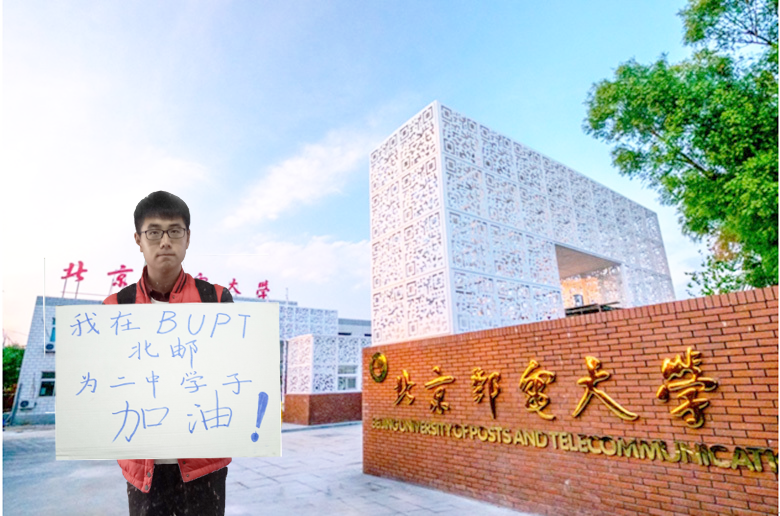 北京邮电大學
我在BUPT
北邮
为二中学子
加油！
北京郵電大学
BEIJING UNIVERSITY OF POSTS AND TELECOMMUNICATI